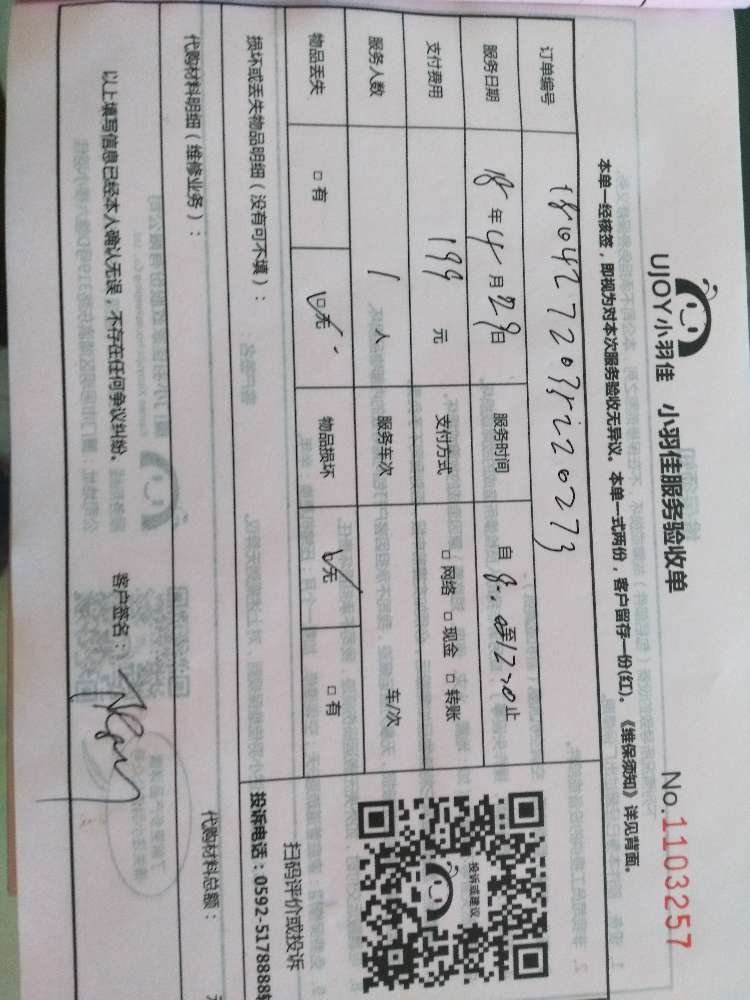 UJOY小羽佳 小羽佳服务验收单
No.1103257
本单一经核签，即视为对本次服务验收无异议。本单一式两份，客户留存一份(红)。《维保须知》详见背面。
订单编号
服务日期 18年4月29日 服务时间 自8:00至12:00止
支付费用 199元 支付方式 □网络 □现金 □转账
服务人数 1人 服务车次 车/次
物品丢失 □有 ☑无 物品损坏 ☑无 □有
投诉或建议
扫码评价或投诉
投诉电话：0592-5178888转
损坏或丢失物品明细（没有可不填）：
代购材料明细（维修业务）： 代购材料总额：
以上填写信息已经本人确认无误，不存在任何争议纠纷。 客户签名：